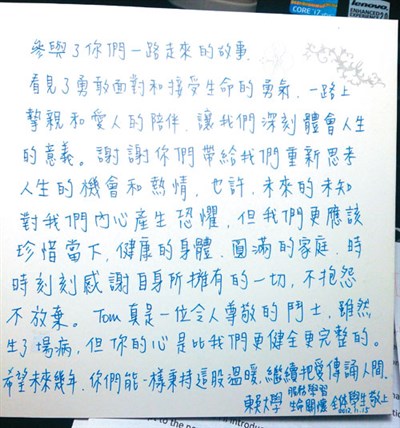 lenovo
CORE i7
ENHANCED
EXPERIENCE
參與了你們一路走來的故事.
看見了勇敢面對和接受生命的勇氣. 一路上
摯親和愛人的陪伴. 讓我們深刻體會人生
的意義。謝謝你們帶給我們重新思考
人生的機會和熱情. 也許. 未來的未知
對我們內心產生恐懼. 但我們更應該
珍惜當下. 健康的身體. 圓滿的家庭. 時
時刻刻感謝自身所擁有的一切. 不抱怨.
不放棄。Tom真是一位令人尊敬的鬥士. 雖然
生了場病, 但你的心是比我們更健全更完整的。
希望未來幾年. 你們能一樣秉持這股溫暖. 繼續把愛傳誦人間.
服務學習
東吳大學 生命關懷 全体學生敬上
2012.11.15